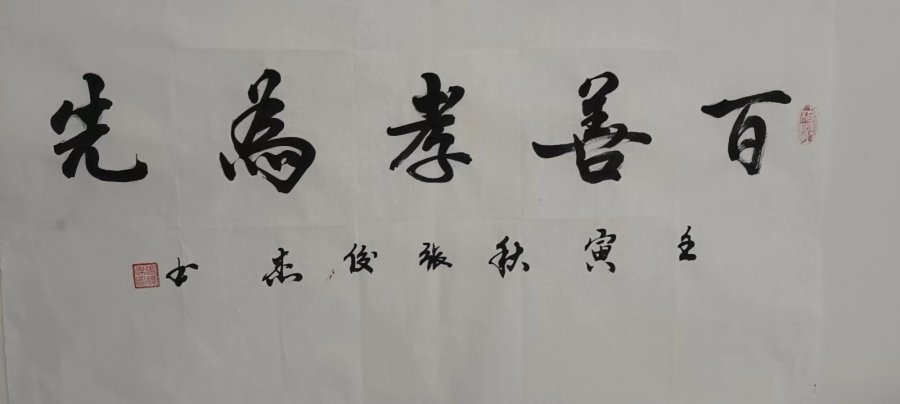 百善孝為先
壬寅秋張俊杰书